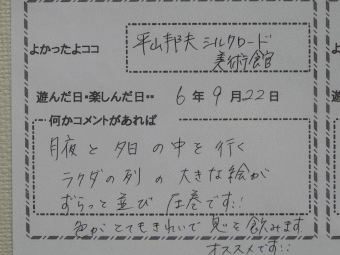 よかったよココ
平山郁夫シルクロード
美術館
遊んだ日・楽しんだ日・・ 6年9月22日
何かコメントがあれば
月夜と夕日の中を行く
ラクダの列の大きな絵が
ずらっと並び圧巻です!!
色がとてもきれいで息を飲みます
オススメです!!